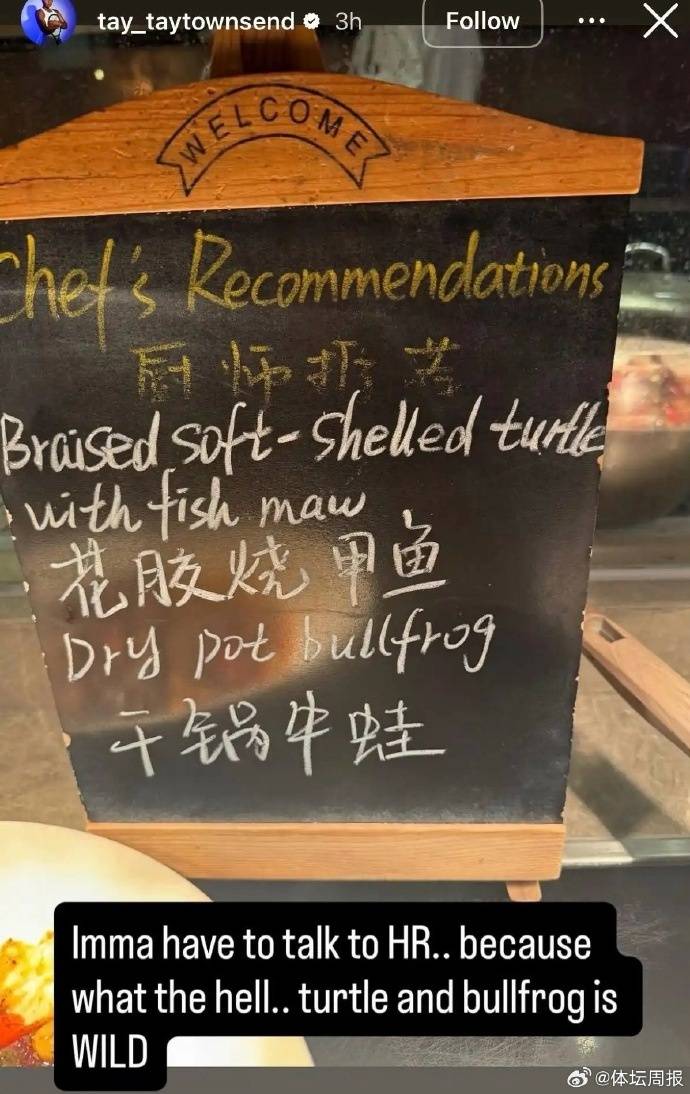 tay_taytownsend 3h Follow
WELCOME
Chef's Recommendations
厨师推荐
Braised soft-shelled turtle
with fish maw
花胶烧甲鱼
Dry pot bullfrog
干锅牛蛙
Imma have to talk to HR.. because
what the hell.. turtle and bullfrog is
WILD
@体坛周报